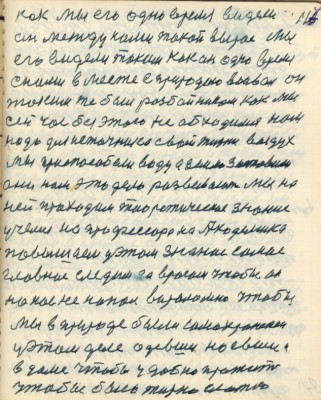 как мы его одно время видели
он между нами такой вырос мы
его видели таким как он одно время
с нами вместе с природою воевал он
таким же был разбойником как мы
сейчас без этого не обходимся нам
надо для источника своей жизни воздух
мы приспособили воду а землю заставили
они нам это дело развивают мы на
ней проходим теоретическое знание
учимся на профессора на Академика
повышаем у этом знание самое
главное следим за врагом чтобы он
на нас не напал внезапно чтобы
мы в природе были самохранением
у этом деле одевши наевши
в доме чтобы удобно прожить
чтобы было жирно сладко